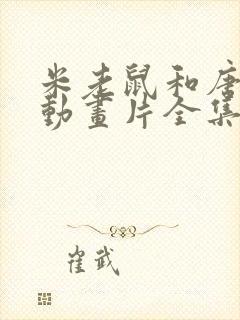 米老鼠和唐
動畫片全集
崔武